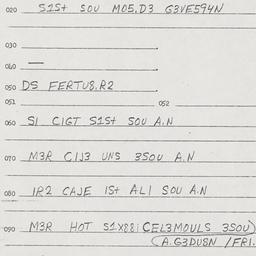 020 S1S+ SOU M05.D3 G3VE594N
030
040 —
050 DS FERTU8.R2
051 052
060 S1 CIGT S1S+ SOU A.N
070 M3R C1J3 UNS 3SOU A.N
080 1R2 CAJE 1S+ AL1 SOU A.N
090 M3R HOT S1X88i (CEL3MOULS 3SOU)
(A.G3DUSN /FRI.